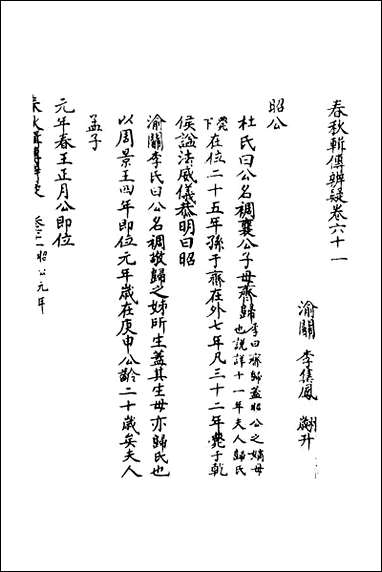 春秋輯傳辨疑卷六十一
渝關 李集鳳 翽升
昭公
杜氏曰公名裯襄公子母齊歸李曰齊歸蓋昭公之嫡母
也說詳十一年夫人歸氏
薨下在位二十五年孫于齊在外七年凡三十二年薨于乾
侯謚法威儀恭明曰昭
渝關李氏曰公名裯敬歸之娣所生蓋其生母亦歸氏也
以周景王四年即位元年歲在庚申公齡二十歲矣夫人
孟子
元年春王正月公即位
春秋輯傳辨疑 昭公元年